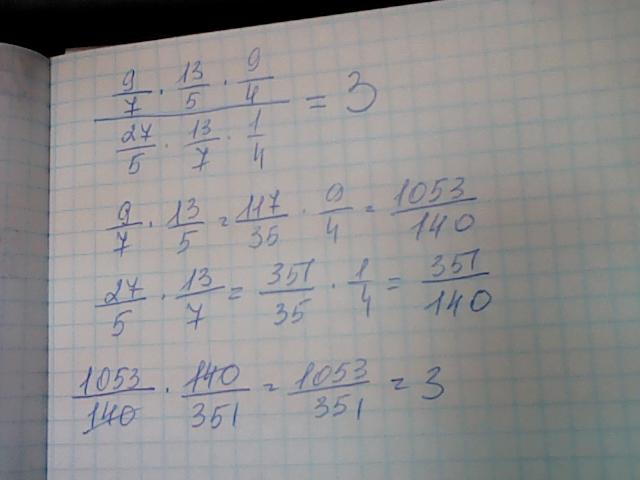 9/7 · 13/5 · 9/4
27/5 · 13/7 · 1/4 = 3
9/7 · 13/5 = 117/35 · 9/4 = 1053/140
27/5 · 13/7 = 351/35 · 1/4 = 351/140
1053/140 · 140/351 = 1053/351 = 3